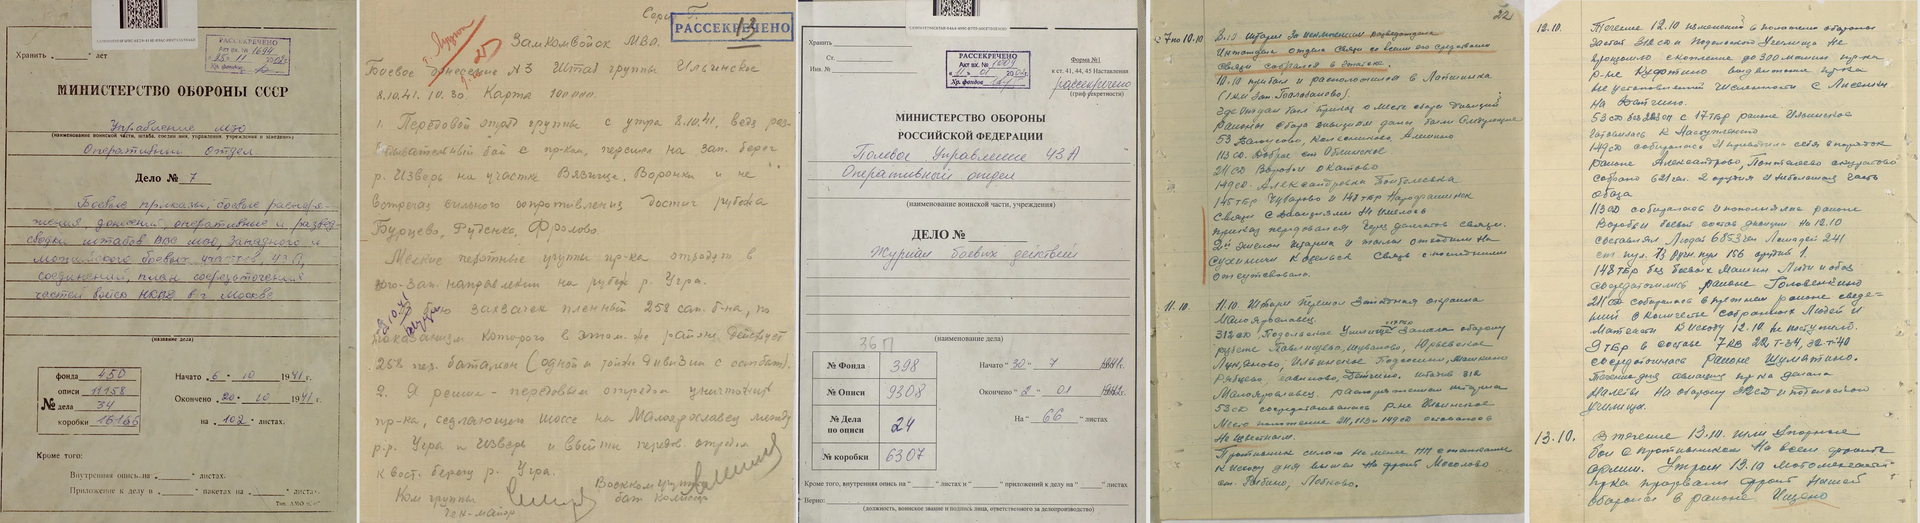 Хранить " " лет
РАССЕКРЕЧЕНО
Акт вх. № 1694
МИНИСТЕРСТВО ОБОРОНЫ СССР
Управление МЗО
(наименование воинской части, штаба, соединения, управления учреждения и заведения)
Оперативный отдел
Дело № 7
Боевые приказы, боевые распоря-
жения, донесения, оперативные и развед-
сводки штабов ВВС МЗО, Западного и
можайского боевых участков, 43 А,
соединений, план сосредоточения
частей войск НКВД в г. Москве
(название дела)
фонда 450
описи 11158
№ дела 34
коробки 16166
Начато „6" 10 1941 г.
Окончено „20" 10 1941 г.
на „102" листах.
Кроме того:
Внутренняя опись на „ " листах.
Приложение к делу в „ " пакетах на „ " листах.
Серия Г.
РАССЕКРЕЧЕНО
13
Замкомвойск МВО.
Боевое донесение №3 Штаб группы Ильинские
8.10.41. 10.30 Карта 100000.
1. Передовой отряд группы с утра 8.10.41. ведя раз-
ведывательный бой с пр-ком, перешел на зап. берег
р. Изверь на участке Вязище, Воронки и не
встречая сильного сопротивления достиг рубежа
Бурцево, Руденко, Фролово.
Мелкие пехотные группы пр-ка отходят в
юго-зап. направлении на рубеж р. Угра.
захвачен пленный 258 сап. б-на, по
показаниям которого в этом же районе действует
258 пех. батальон (одной а той же дивизии с остальн).
2. Я решил - передовым отрядом уничтожить
пр-ка, седлающего шоссе на Малоярославец между
р.р. Угра и Изверь и выйти передов. отрядом
к вост. берегу р. Угра.
Ком группы
Ген-майор
Военком группы
бат. комиссар
Хранить
Ст.
Инв. №
РАССЕКРЕЧЕНО
Акт вх. № 1009
Форма №1
к ст. 41, 44, 45 Наставления
рассекречено
(гриф секретности)
МИНИСТЕРСТВО ОБОРОНЫ
РОССИЙСКОЙ ФЕДЕРАЦИИ
Полевое Управление 43А
Оперативный отдел
(наименование воинской части, учреждения)
ДЕЛО №
Журнал боевых действий
36П
(наименование дела)
№ Фонда 398
№ Описи 9308
№ Дела по описи 24
№ коробки 6307
Начато "30" 7 1941г.
Окончено "2" 01
На " 66 " листах
Кроме того, внутренняя опись на " " листах и " " приложений к делу на " " листах.
Верно:
(должность, воинское звание и подпись лица, ответственного за делопроизводство)
22
с 7 по 10.10
связи собрался в
10.10 прибыл и расположился в Лапшинка
(1 км зап. Балабаново).
районы сбора дивизиям даны были следующие
53 Белоусово, Колесниково, Алешино
113 сд. Доброе ст Обнинское
211 сд Воробьи Окатово
149 сд. Александровка
145 тбр Чубарово и 148 тбр Нарофоминск
связи с дивизиями не имелось
приказ передавался через делегатов связи.
2ой эшелон штарма и тылы отходили на
Сухиничи Козельск связь с последними
отсутствовала.
11.10.
11.10. Штарм перешел западная окраина
Малоярославец
312 сд, Подольское Училище заняла оборону
рубеже Павлищево, Шубино, Юрьевское
Лукьяново, Ильинское Подсосино, Машкино
Детчино. штадив 312
Малоярославец. распоряжением штарма
53 сд сосредотачивалась р-не Ильинское
Место положение 211, 113 и 149 сд оставалось
не известным.
Противник силою не менее ПП с танками
к исходу дня вышел на фронт Мосолово
ст. Рябино, Лобково.
12.10.
Течение 12.10 изменений в положении обороны
312 сд и Подольского Училища не
произошло скопление до 300 машин пр-ка
р-не Кудиново выдвижение пр-ка
не установленной численности с Лисенки
на Детчино.
53 сд без 223 сп с 17 тбр районе Ильинское
готовилась к наступлению
149 сд собиралась и приводила себя в порядок
районе Александрово, Пантелеево
собрано 621 чел. 2 орудия и небольшая часть
обоза
113 сд собиралась и пополнялась районе
Воробьи боевой состав дивизии на 12.10
составлял Людей 6853 чел Лошадей 241
ст. пул. 13 руч. пул 156 орудий 1.
148 тбр без боевых машин Люди и обоз
сосредоточились районе Головенькино
211 сд собиралась в прежнем районе сведе-
ний о количестве собранных людей и
матчасти к исходу 12.10 не поступило.
9 тбр в составе 7 КВ 22 Т-34, 32 Т-40
сосредоточилась районе Шумятино.
Течение дня авиация пр-ка делала
налеты на оборону 312 сд и подольского
Училища.
13.10.
В течение 13.10. шли упорные
бои с противником на всем фронте
Армии. Утром 13.10 мотомехчасти
пр-ка прорвали фронт нашей
обороны в районе. Ищено